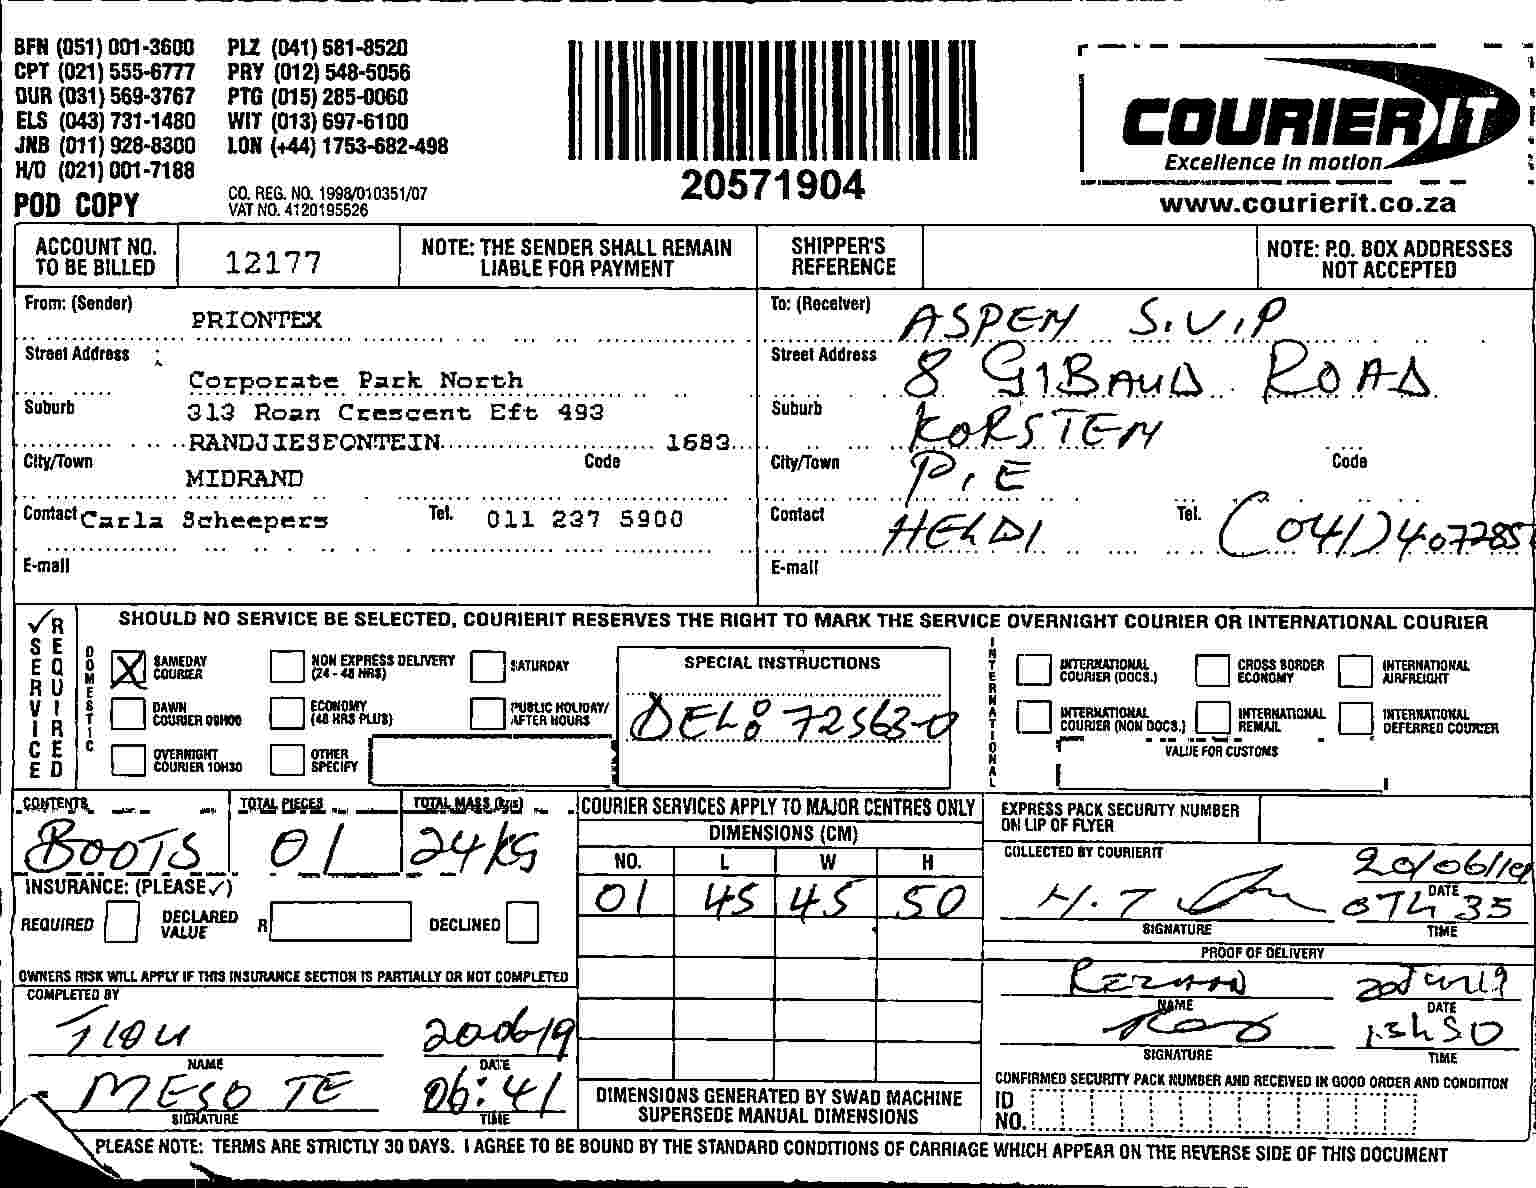 BFN (051) 001-3600 PLZ (041) 581-8520
CPT (021) 555-6777 PRY (012) 548-5056
DUR (031) 569-3767 PTG (015) 285-0060
ELS (043) 731-1480 WIT (013) 697-6100
JNB (011) 928-8300 LON (+44) 1753-682-498
H/O (021) 001-7188
POD COPY
CO. REG. NO. 1998/010351/07
VAT NO. 4120195526
20571904
COURIER IT
Excellence in motion
www.courierit.co.za
ACCOUNT NO. TO BE BILLED
12177
NOTE: THE SENDER SHALL REMAIN LIABLE FOR PAYMENT
SHIPPER'S REFERENCE
NOTE: P.O. BOX ADDRESSES NOT ACCEPTED
From: (Sender)
PRIONTEX
Street Address :
Corporate Park North
Suburb 313 Roan Crescent Eft 493
RANDJIESFONTEIN 1683
City/Town Code
MIDRAND
Contact Carla Scheepers Tel. 011 237 5900
E-mail
To: (Receiver) ASPEN S.V.P
Street Address 8 GIBAUD ROAD
Suburb KORSTEN
City/Town P.E Code
Contact HEIDI Tel. (041) 407285
E-mail
✓ SERVICE REQUIRED
SHOULD NO SERVICE BE SELECTED, COURIERIT RESERVES THE RIGHT TO MARK THE SERVICE OVERNIGHT COURIER OR INTERNATIONAL COURIER
DOMESTIC
X SAMEDAY COURIER
NON EXPRESS DELIVERY (24 - 48 HRS)
SATURDAY
DAWN COURIER 09H00
ECONOMY (48 HRS PLUS)
PUBLIC HOLIDAY/ AFTER HOURS
OVERNIGHT COURIER 10H30
OTHER SPECIFY
SPECIAL INSTRUCTIONS
DEL: 72563-0
INTERNATIONAL
INTERNATIONAL COURIER (DOCS.)
CROSS BORDER ECONOMY
INTERNATIONAL AIRFREIGHT
INTERNATIONAL COURIER (NON DOCS.)
INTERNATIONAL REMAIL
INTERNATIONAL DEFERRED COURIER
VALUE FOR CUSTOMS
CONTENTS TOTAL PIECES TOTAL MASS (kgs)
BOOTS 01 24KG
INSURANCE: (PLEASE ✓)
REQUIRED DECLARED VALUE R DECLINED
OWNERS RISK WILL APPLY IF THIS INSURANCE SECTION IS PARTIALLY OR NOT COMPLETED
COMPLETED BY
20 06/19
NAME DATE
06:41
SIGNATURE TIME
COURIER SERVICES APPLY TO MAJOR CENTRES ONLY
DIMENSIONS (CM)
NO. L W H
01 45 45 50
DIMENSIONS GENERATED BY SWAD MACHINE SUPERSEDE MANUAL DIMENSIONS
EXPRESS PACK SECURITY NUMBER ON LIP OF FLYER
COLLECTED BY COURIERIT
20/06/19
DATE
H.T 07h35
SIGNATURE TIME
PROOF OF DELIVERY
20Jun19
NAME DATE
13h50
SIGNATURE TIME
CONFIRMED SECURITY PACK NUMBER AND RECEIVED IN GOOD ORDER AND CONDITION
ID NO.
PLEASE NOTE: TERMS ARE STRICTLY 30 DAYS. I AGREE TO BE BOUND BY THE STANDARD CONDITIONS OF CARRIAGE WHICH APPEAR ON THE REVERSE SIDE OF THIS DOCUMENT